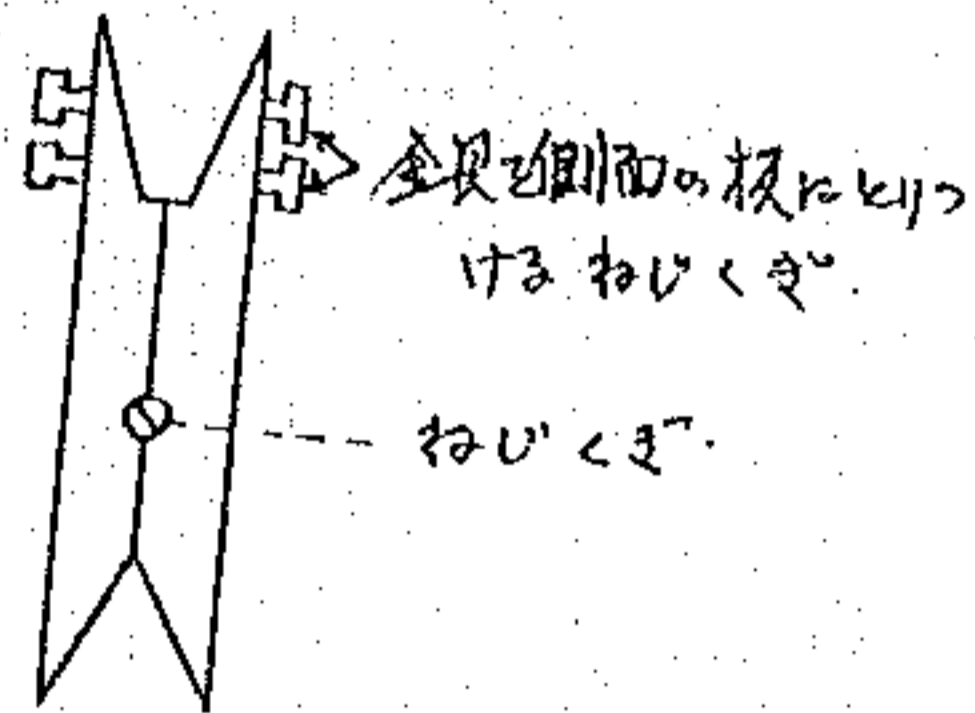 金具を側面の板にとりつ
けるねじくぎ.
ねじくぎ.